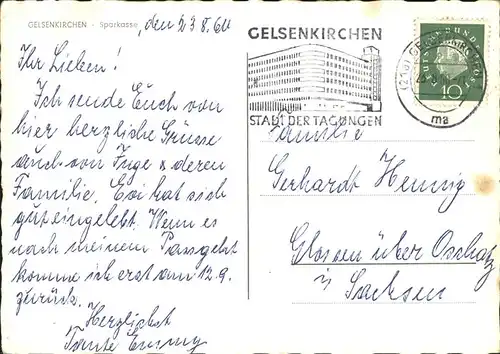 GELSENKIRCHEN - Sparkasse, den 23.8.60
Ihr Lieben!
Ich sende Euch von
hier herzliche Grüsse
auch von Inge & deren
Familie. Evi hat sich
gut eingelebt. Wenn es
nach meinem Pass geht
komme ich erst am 12.9.
zurück.
Herzlichst
Tante Emmy
GELSENKIRCHEN
STADT DER TAGUNGEN
ma
10
Familie
Gerhardt Hennig
Glossen über Oschatz
in Sachsen